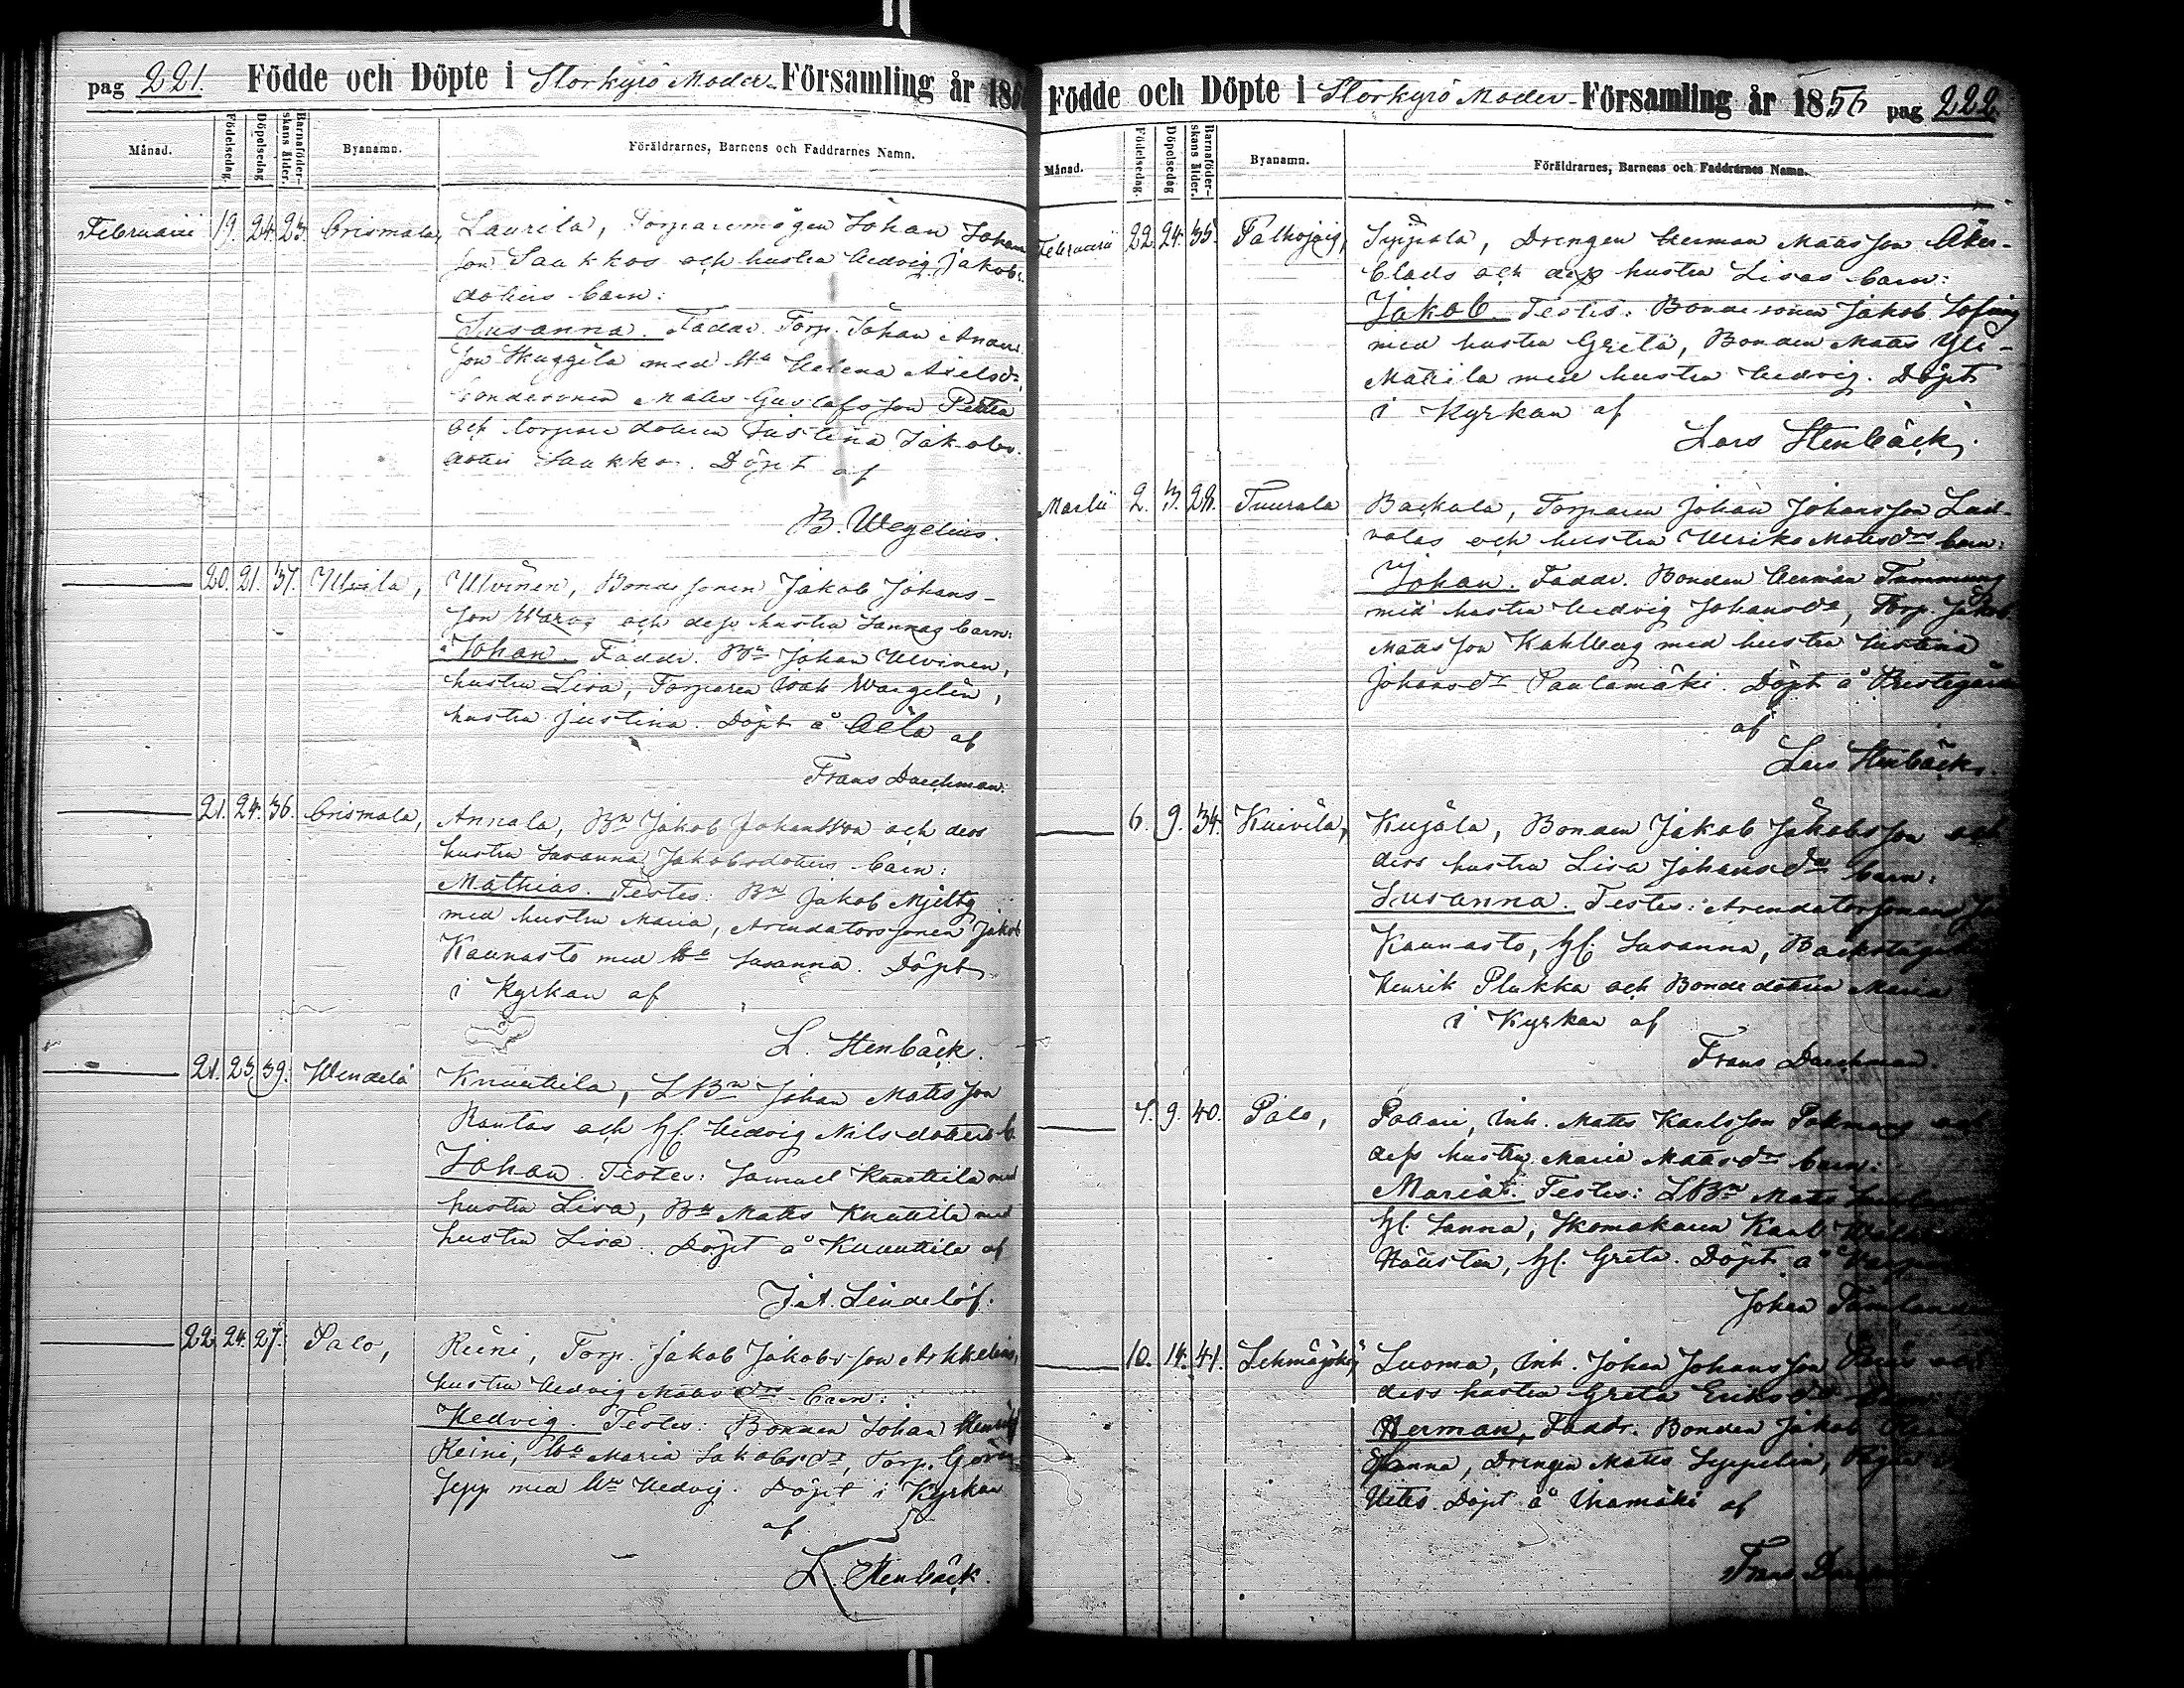 pag 221. Födde och Döpte i Storkyrö Moder- Församling år 18
Månad. Födelsedag. Döpelsedag Barnaföder-skans ålder. Byanamn. Föräldrarnes, Barnens och Faddrarnes Namn.
Februarii 19. 24. 23. Orismala, Laurila, Torparemågen Johan Johans
son Saukkos och hustru Hedvig Jakobs
dotters barn:
Susanna. Faddr. Torp. Johan
son Skuggila med H:u Helena Axelsdr,
bondesonen Matts Gustafsson Perttu
och torpare dottren Justina Jakobs
dotter Saukko. Döpt af
B. Wegelius.
20. 21. 37. Ulvila, Ulvinen, Bondesonen Jakob Johans-
son och dess hustru Sannas barn:
Johan. Faddr. Bn Johan Ulvinen,
hustru Lisa, Torparen Isak Wargelin,
hustru Justina. Döpt å af
Frans Durchman.
21. 24. 36. Orismala, Annala, Bn Jakob Johansson och dess
hustru Susanna Jakobsdotters barn:
Mathias. Testes: Bn Jakob Mjelty
med hustru Maria, Arendatorssonen Jakob
Kaunasto med H:u Susanna. Döpt
i Kyrkan af
L. Stenbäck.
21. 23. 39. Wendelä Knuuttila, LBn Johan Mattsson
Rantas och hf. Hedvig Nilsdotters b.
Johan. Testes: Samuel Knuttila med
hustru Lisa, Bn Matts Knuttila med
hustru Lisa. Döpt å Knuuttila af
J. A. Lindelöf.
22. 24. 27. Palo, Reini, Torp. Jakob Jakobsson
hustru Hedvig Mattsdrs barn:
Hedvig. Testes: Bonden Johan
Reini, H:u Maria Jakobsdr, Torp.
Jepp med H:u Hedvig. Döpt i Kyrkan
af
L. Stenbäck.
Födde och Döpte i Storkyrö Moder- Församling år 1856 pag 222
Månad. Födelsedag. Döpelsedag Barnaföder-skans ålder. Byanamn. Föräldrarnes, Barnens och Faddrarnes Namn.
Februarii 22. 24. 35. Palhojaig, Seppäla, Drengen Herman Mattsson Åker-
blads och dess hustru Lisas barn:
Jakob. Testes: Bondesonen Jakob
med hustru Greta, Bonden Matts Yli-
Mattila med hustru Hedvig. Döpt
i Kyrkan af
Lars Stenbäck.
Martii 2. 3. 28. Tuurala Backala, Torparen Johan Johansson Lad-
valas och hustru Ulrika Mattsdrs barn:
Johan. Faddr. Bonden Herman Tammung
med hustru Hedvig Johansdr, Torp. Jakob
Mattsson Kahlberg med hustru Justina
Johansdr Paulamäki. Döpt å Prestgården
af
Lars Stenbäck.
6. 9. 34. Kuivila, Kujala, Bonden Jakob Jakobsson och
dess hustru Lisa Johansdrs barn:
Susanna. Testes: Arendatorsonen
Kaunasto, hf. Susanna,
Henrik Plukka och Bondedottren Maria
i Kyrkan af
Frans Durchman.
7. 9. 40. Palo, Pollari, Inh. Matts Karlsson och
dess hustru Maria Mattsdrs barn:
Maria. Testes: LBn Matts
hf. Sanna, Skomakaren Karl
hf. Greta. Döpt å
Johan
10. 14. 41. Lehmäjoki, Luoma, Inh. Johan Johansson och
dess hustru Greta Eriksdrs barn:
Herman, Faddr. Bonden Jakob
Sanna, Drengen Matts Seppelin, Pigan
Döpt å af
Frans